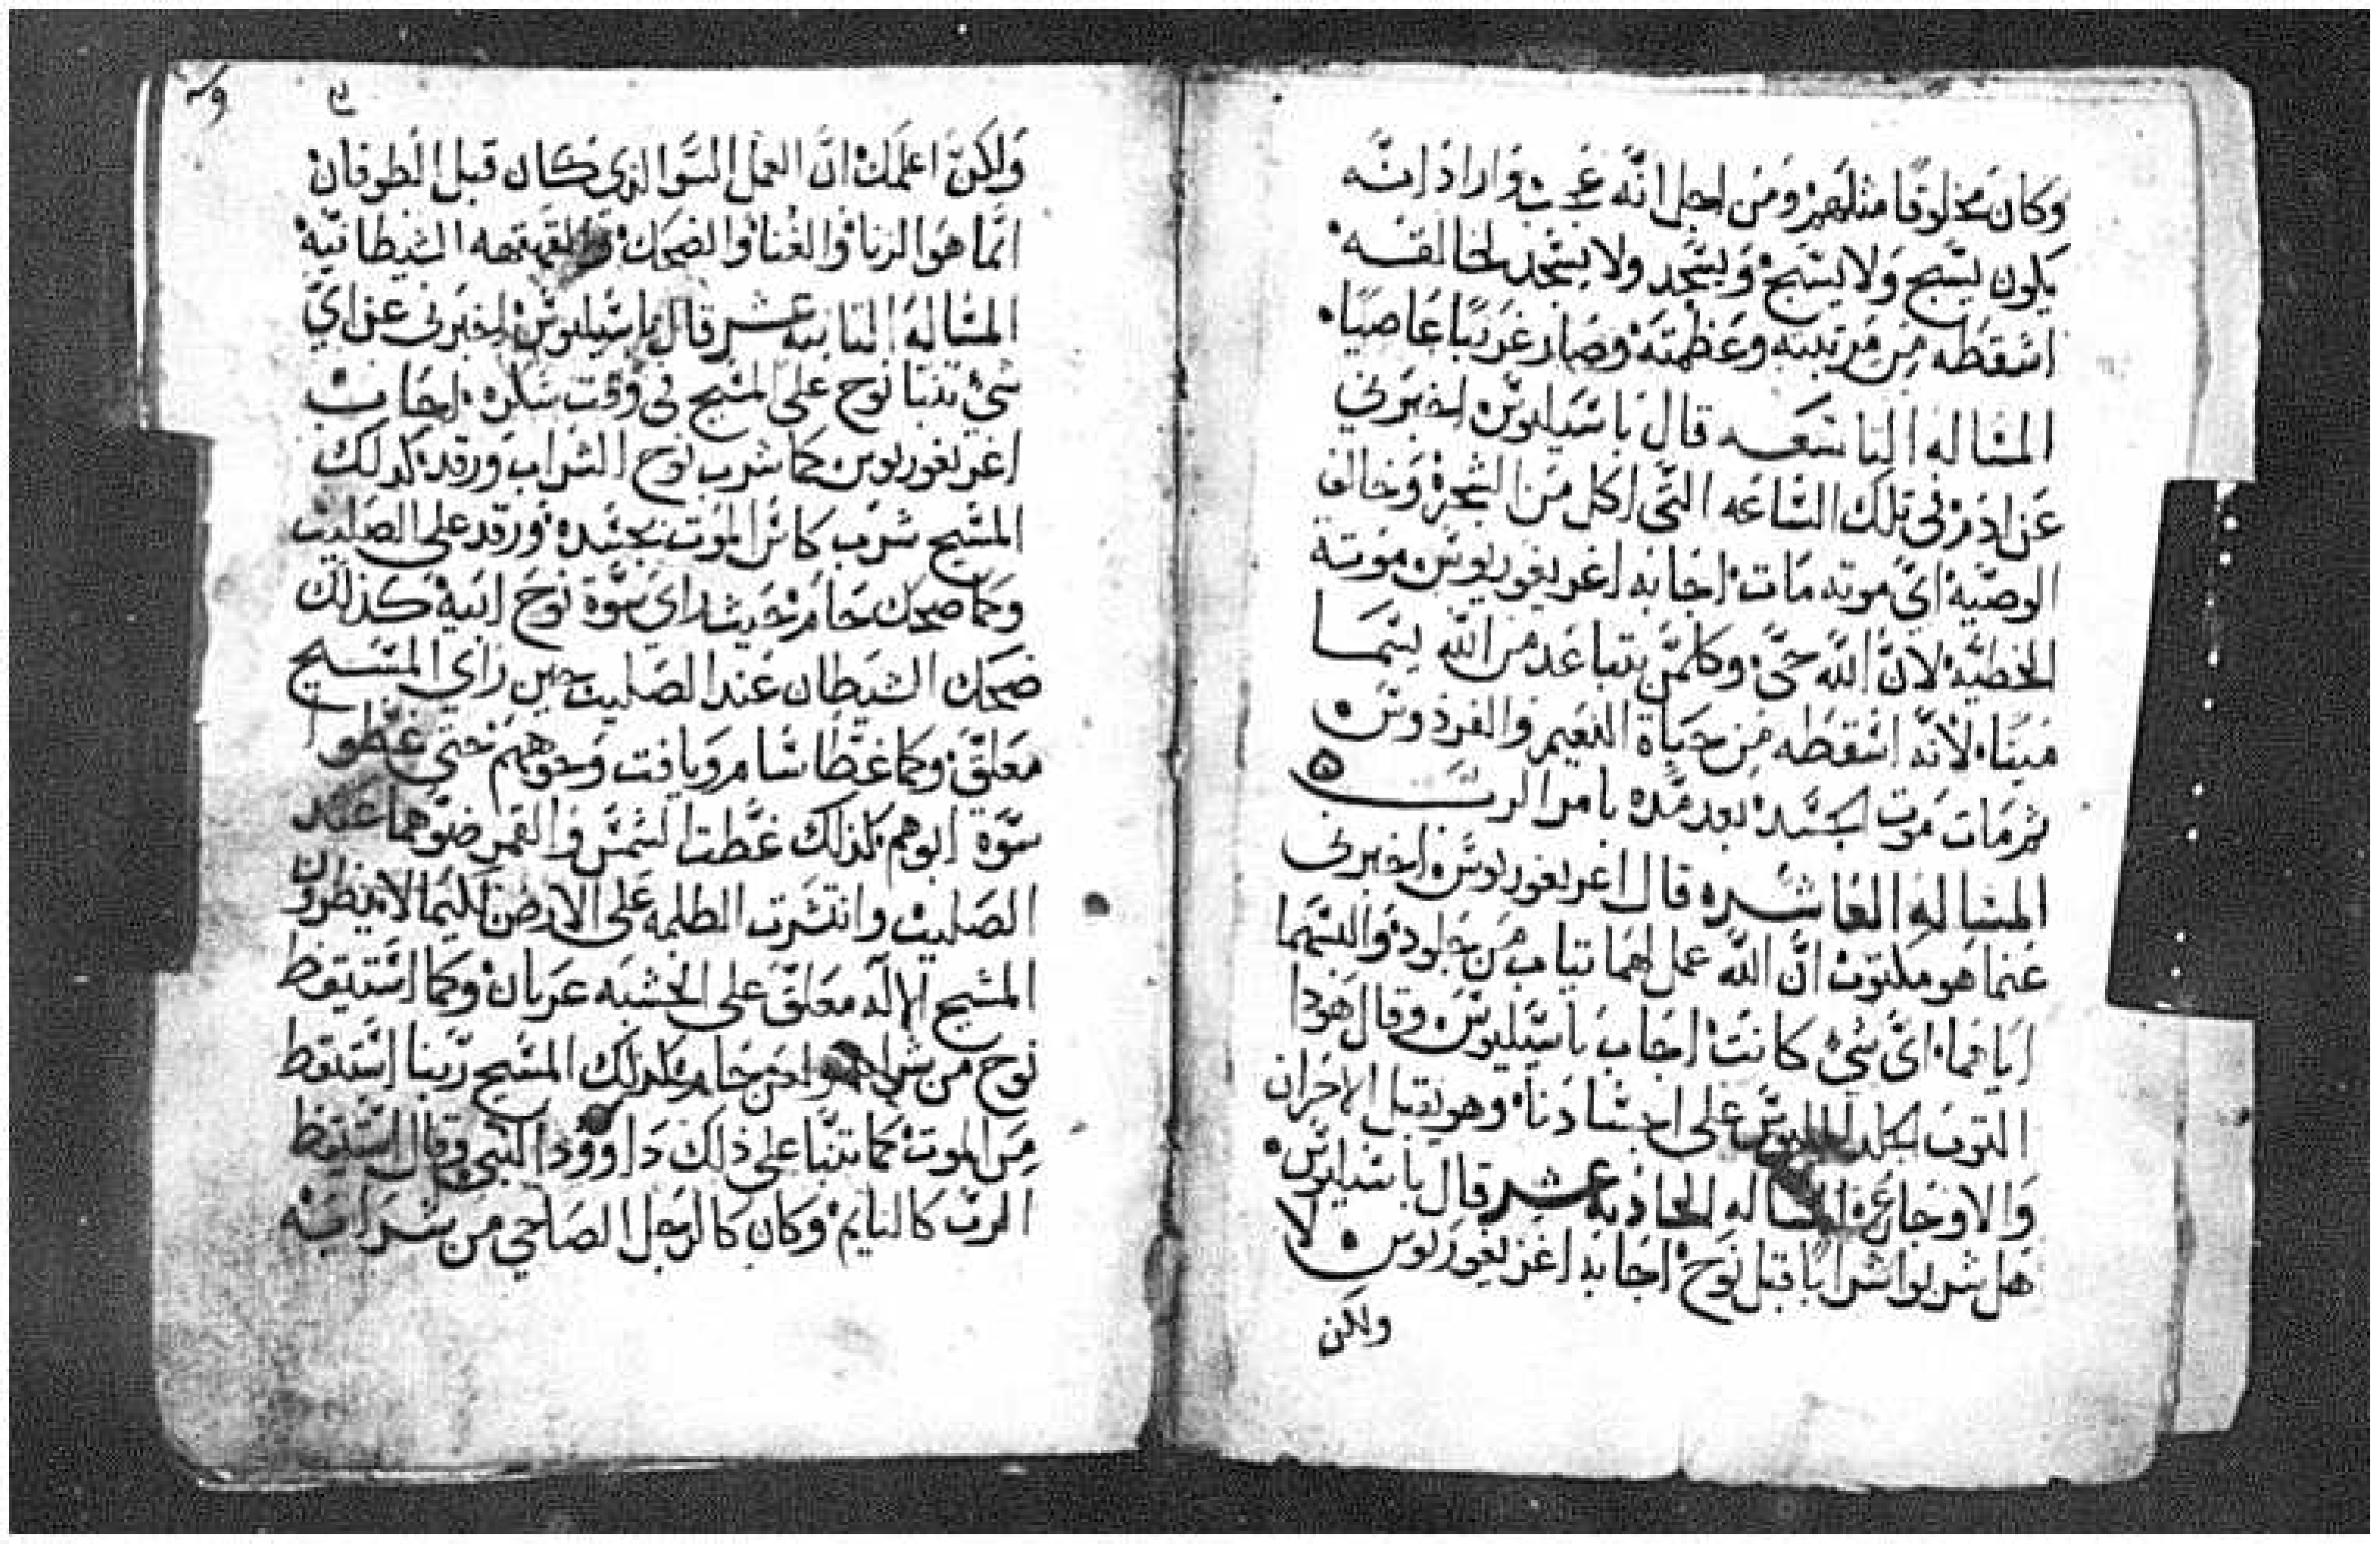 وَكانَ مخلوقًا مثلهم ومن اجل انّه عجب وَاراد انّه
يكون يسّبح وَلا يسَبح وَيسَجد ولا يسَجد لخالقه
اسقطه مِن مرتبته وعَظمتة وصار غريبًا عَاصيًا
المسَاله التاسَعه قال باسَيليوس اخبرَني
عَن ادَم في تلك السّاعَه التي اكل من الشجرة وَخالف
الوصيّه ايّ موته مَات اجَابه اغريغوريوس موتة
الخطيّه لانّ اللّه حَيّ وكلمّن يتباعَد من اللّه يسَمَا
ميتًا لانّه اسقطه مِن حَياة النعَيم والفردوس
ثم مَات مَوت الجسَد بعد مدّه بامر الرب ه
المسَاله العَاشره قال اغريغوريوس اخبرني
عَنما هو مكتوب انّ اللّه عمل لهما تياب من جلود والبسهما
اياهما ايّ شي كانت اجَاب باسَيليوس وقال هودا
التوب الجلد الملبوس على اجسَادنا وهو يقبل الاحزان
وَالاوجَاع المسَاله الحادية عشر قال باسيليوس
هَل شربوا شرابًا قبل نوح اجَابه اغريغوريوس لا
ولكن
وَلكن اعلمك انّ العمل السَوا الذي كان قبل الطوفان
انّما هَوا الزنا وَالغنا وَالضحك وَالقهقهه الشيطانيّه
المسَاله الثانيه عَشر قال باسَيليوس اخبَرني عن ايّ
شي تنبّا نوح على المسَيح في وَقت سَكره اجَاب
اغريغوريوس كما شرب نوح الشراب وَرقد كدلك
المسَيح شرب كاس الموت بجسَده وَرقد على الصَليب
وَكما ضحك حَام حَيث راي سَوّة نوح ابيه كذلك
ضحك الشيَطان عَند الصَليب حين رَاي المسَيح
معَلّق وَكما غطّا سَام وَيافت وجوههم حَتى غطوا
سَوّة ابوهم كذلك غَطت الشمَس وَالقمر ضوهما عند
الصَليب وانتشرت الظلمه على الارض لكيما لا ينظرون
المسَيح الاله معَلّق على الخشبَه عَريان وَكما استيقظ
نوح من شرابه وَاحزن حَام كذلك المسَيح ربّنا استيقظ
مِن الموت كما تنبّا على ذلك دَاوود النبي وقال استيقظ
الربّ كالنايم وَكان كالرجل الصَاحي من شرابَه